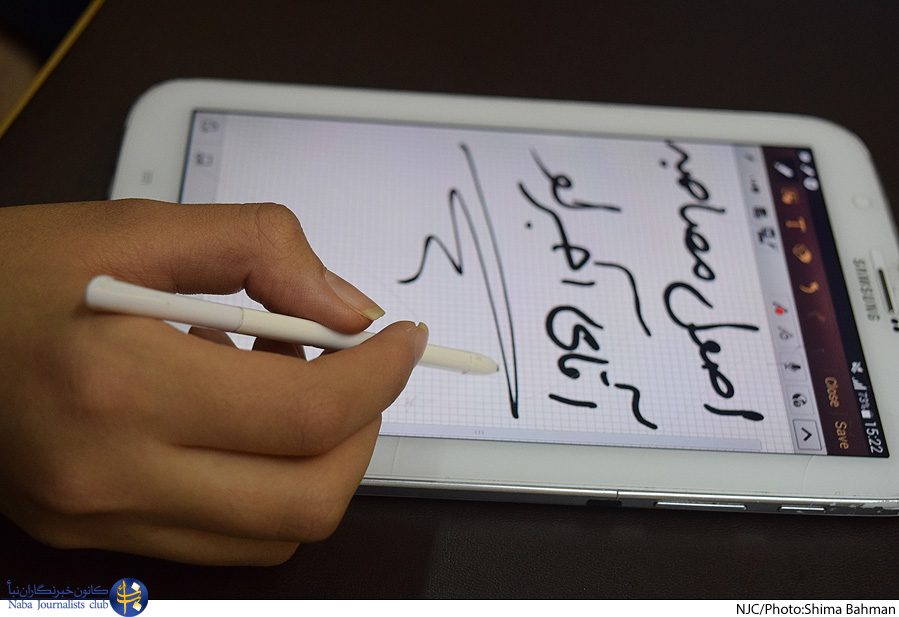 73% 15:22
Close Save
اصول مصاحبه
آقای اکبرلو
SAMSUNG
کانون خبرنگاران نبأ
Naba Journalists club
NJC/Photo:Shima Bahman